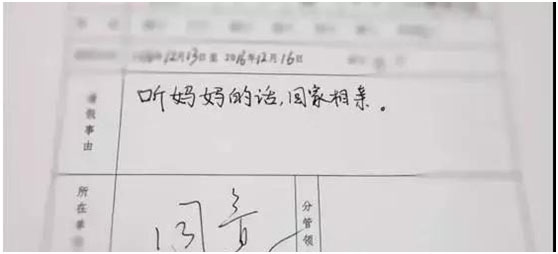 12月13日至2016年12月16日
请假事由
听妈妈的话,回家相亲。
所在单
同意
分管领